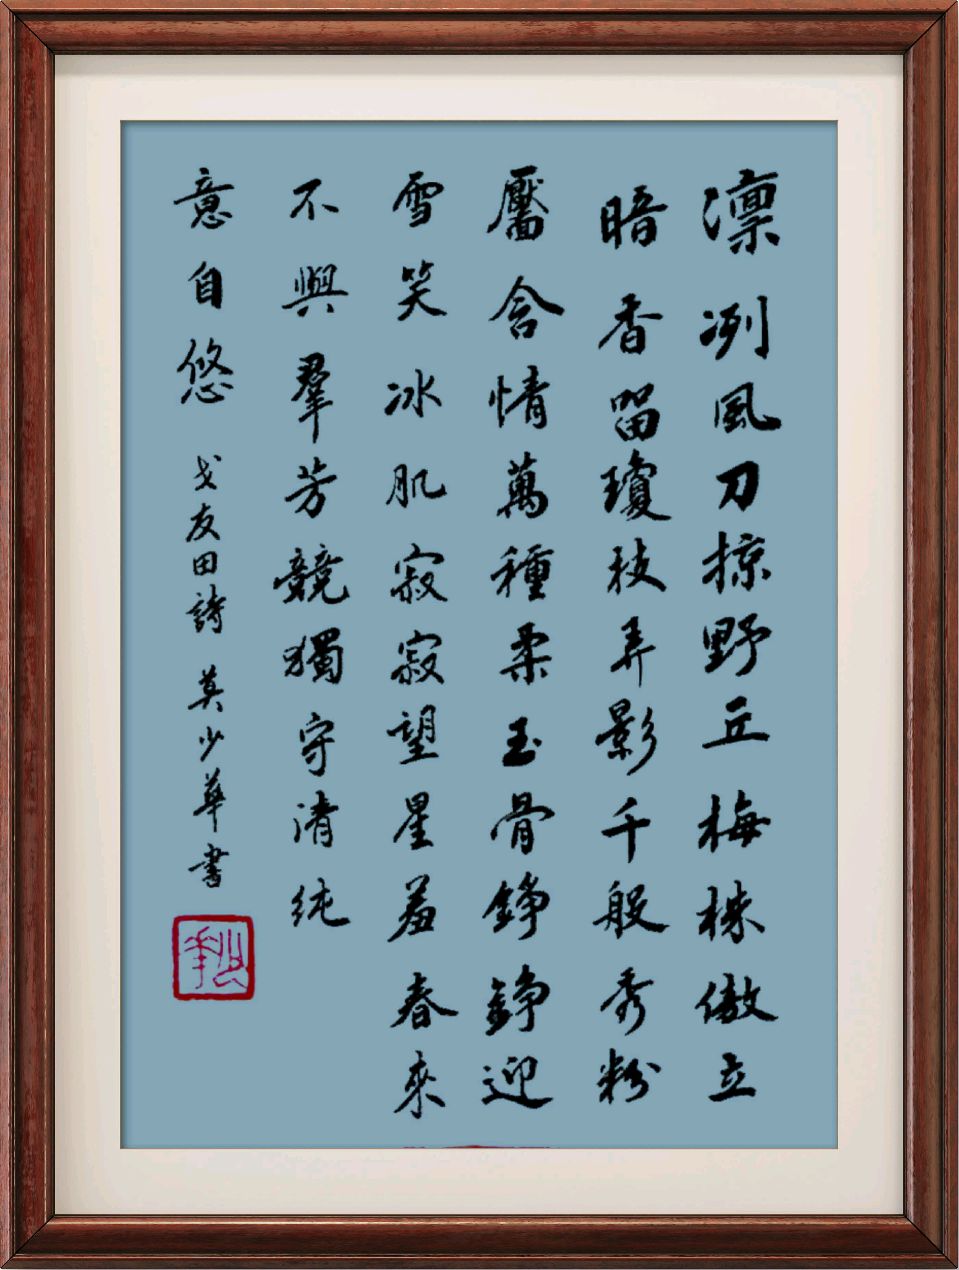 凛冽風刀掠野丘梅株傲立
暗香留瓊枝弄影千般秀粉
靨含情萬種柔玉骨錚錚迎
雪笑冰肌寂寂望星羞春來
不與羣芳競獨守清純
意自悠 戈友田詩 莫少華書
少華